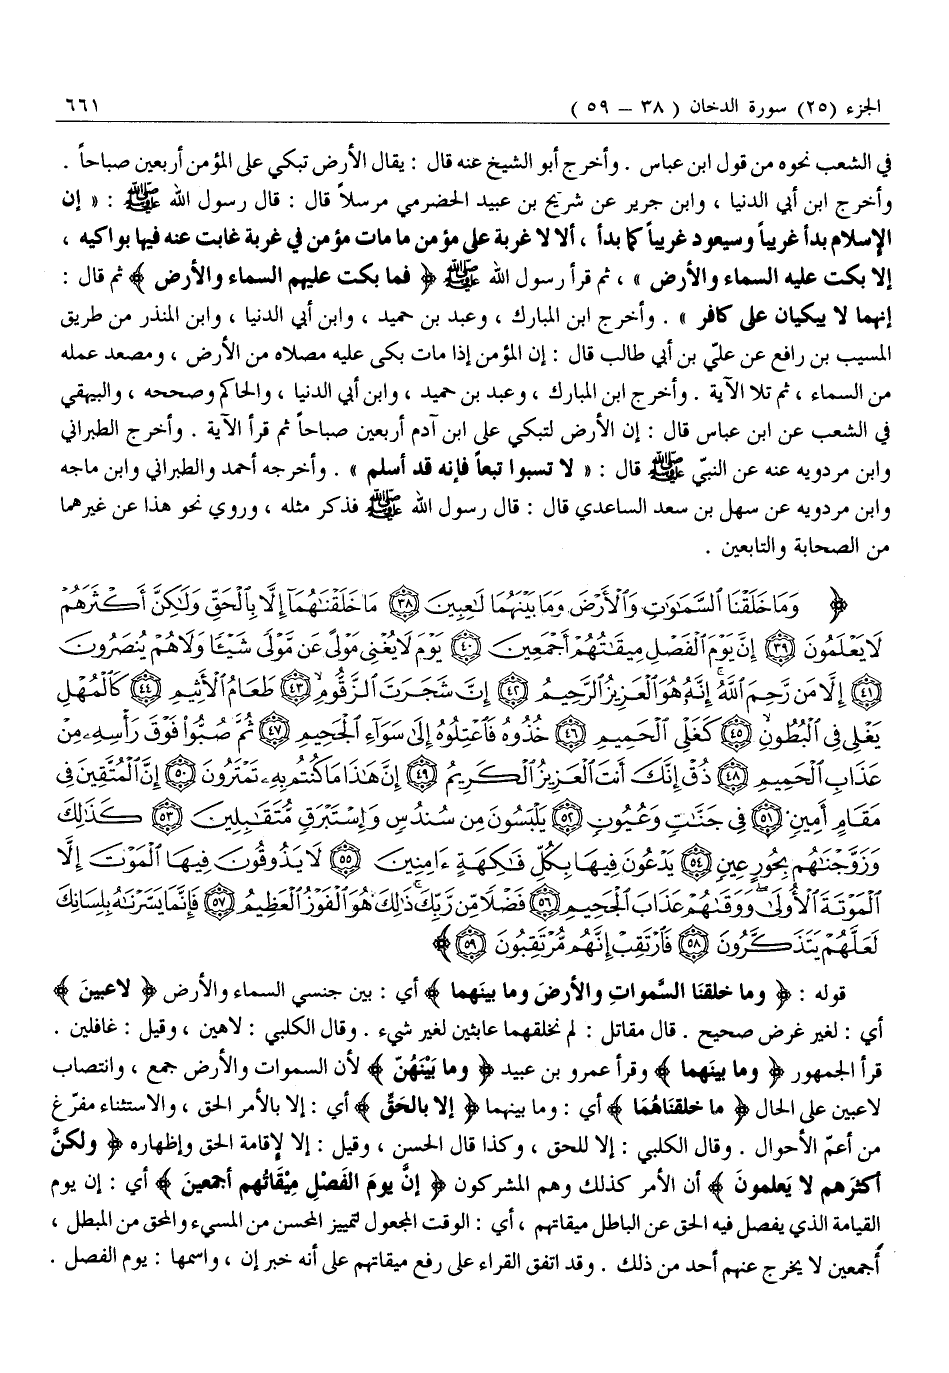 الجزء (٢٥) سورة الدخان ( ٣٨ – ٥٩ ) ٦٦١
في الشعب نحوه من قول ابن عباس . وأخرج أبو الشيخ عنه قال : يقال الأرض تبكي على المؤمن أربعين صباحاً .
وأخرج ابن أبي الدنيا ، وابن جرير عن شريح بن عبيد الحضرمي مرسلاً قال : قال رسول الله ﷺ : « إن
الإسلام بدأ غريباً وسيعود غريباً كما بدأ ، ألا لا غربة على مؤمن ما مات مؤمن في غربة غابت عنه فيها بواكيه ،
إلا بكت عليه السماء والأرض » ، ثم قرأ رسول الله ﷺ ﴿ فما بكت عليهم السماء والأرض ﴾ ثم قال :
إنهما لا يبكيان على كافر » . وأخرج ابن المبارك ، وعبد بن حميد ، وابن أبي الدنيا ، وابن المنذر من طريق
المسيب بن رافع عن عليّ بن أبي طالب قال : إن المؤمن إذا مات بكى عليه مصلاه من الأرض ، ومصعد عمله
من السماء ، ثم تلا الآية . وأخرج ابن المبارك ، وعبد بن حميد ، وابن أبي الدنيا ، والحاكم وصححه ، والبيهقي
في الشعب عن ابن عباس قال : إن الأرض لتبكي على ابن آدم أربعين صباحاً ثم قرأ الآية . وأخرج الطبراني
وابن مردويه عنه عن النبيّ ﷺ قال : « لا تسبوا تبعاً فإنه قد أسلم » . وأخرجه أحمد والطبراني وابن ماجه
وابن مردويه عن سهل بن سعد الساعدي قال : قال رسول الله ﷺ فذكر مثله ، وروي نحو هذا عن غيرهما
من الصحابة والتابعين .
﴿ وَمَا خَلَقْنَا ٱلسَّمَٰوَٰتِ وَٱلْأَرْضَ وَمَا بَيْنَهُمَا لَٰعِبِينَ ٣٨ مَا خَلَقْنَٰهُمَآ إِلَّا بِٱلْحَقِّ وَلَٰكِنَّ أَكْثَرَهُمْ
لَا يَعْلَمُونَ ٣٩ إِنَّ يَوْمَ ٱلْفَصْلِ مِيقَٰتُهُمْ أَجْمَعِينَ ٤٠ يَوْمَ لَا يُغْنِى مَوْلًى عَن مَّوْلًى شَيْـًٔا وَلَا هُمْ يُنصَرُونَ
٤١ إِلَّا مَن رَّحِمَ ٱللَّهُ إِنَّهُۥ هُوَ ٱلْعَزِيزُ ٱلرَّحِيمُ ٤٢ إِنَّ شَجَرَتَ ٱلزَّقُّومِ ٤٣ طَعَامُ ٱلْأَثِيمِ ٤٤ كَٱلْمُهْلِ
يَغْلِى فِى ٱلْبُطُونِ ٤٥ كَغَلْىِ ٱلْحَمِيمِ ٤٦ خُذُوهُ فَٱعْتِلُوهُ إِلَىٰ سَوَآءِ ٱلْجَحِيمِ ٤٧ ثُمَّ صُبُّوا۟ فَوْقَ رَأْسِهِۦ مِنْ
عَذَابِ ٱلْحَمِيمِ ٤٨ ذُقْ إِنَّكَ أَنتَ ٱلْعَزِيزُ ٱلْكَرِيمُ ٤٩ إِنَّ هَٰذَا مَا كُنتُم بِهِۦ تَمْتَرُونَ ٥٠ إِنَّ ٱلْمُتَّقِينَ فِى
مَقَامٍ أَمِينٍ ٥١ فِى جَنَّٰتٍ وَعُيُونٍ ٥٢ يَلْبَسُونَ مِن سُندُسٍ وَإِسْتَبْرَقٍ مُّتَقَٰبِلِينَ ٥٣ كَذَٰلِكَ
وَزَوَّجْنَٰهُم بِحُورٍ عِينٍ ٥٤ يَدْعُونَ فِيهَا بِكُلِّ فَٰكِهَةٍ ءَامِنِينَ ٥٥ لَا يَذُوقُونَ فِيهَا ٱلْمَوْتَ إِلَّا
ٱلْمَوْتَةَ ٱلْأُولَىٰ وَوَقَىٰهُمْ عَذَابَ ٱلْجَحِيمِ ٥٦ فَضْلًا مِّن رَّبِّكَ ذَٰلِكَ هُوَ ٱلْفَوْزُ ٱلْعَظِيمُ ٥٧ فَإِنَّمَا يَسَّرْنَٰهُ بِلِسَانِكَ
لَعَلَّهُمْ يَتَذَكَّرُونَ ٥٨ فَٱرْتَقِبْ إِنَّهُم مُّرْتَقِبُونَ ٥٩ ﴾
قوله : ﴿ وما خلقنا السَّموات والأرضَ وما بينهما ﴾ أي : بين جنسي السماء والأرض ﴿ لاعبينَ ﴾
أي : لغير غرض صحيح . قال مقاتل : لم نخلقهما عابثين لغير شيء . وقال الكلبي : لاهين ، وقيل : غافلين .
قرأ الجمهور ﴿ وما بينَهما ﴾ وقرأ عمرو بن عبيد ﴿ وما بَيْنَهُنّ ﴾ لأن السموات والأرض جمع ، وانتصاب
لاعبين على الحال ﴿ ما خلقنَاهُمَا ﴾ أي : وما بينهما ﴿ إلا بالحَقِّ ﴾ أي : إلا بالأمر الحق ، والاستثناء مفرّغ
من أعمّ الأحوال . وقال الكلبي : إلا للحق ، وكذا قال الحسن ، وقيل : إلا لإقامة الحق وإظهاره ﴿ ولكنَّ
أكثَرَهم لا يَعلمونَ ﴾ أن الأمر كذلك وهم المشركون ﴿ إنَّ يومَ الفَصْلِ مِيْقَاتُهم أجمعينَ ﴾ أي : إن يوم
القيامة الذي يفصل فيه الحق عن الباطل ميقاتهم ، أي : الوقت المجعول لتمييز المحسن من المسيء والمحق من المبطل ،
أجمعين لا يخرج عنهم أحد من ذلك . وقد اتفق القراء على رفع ميقاتهم على أنه خبر إن ، واسمها : يوم الفصل .